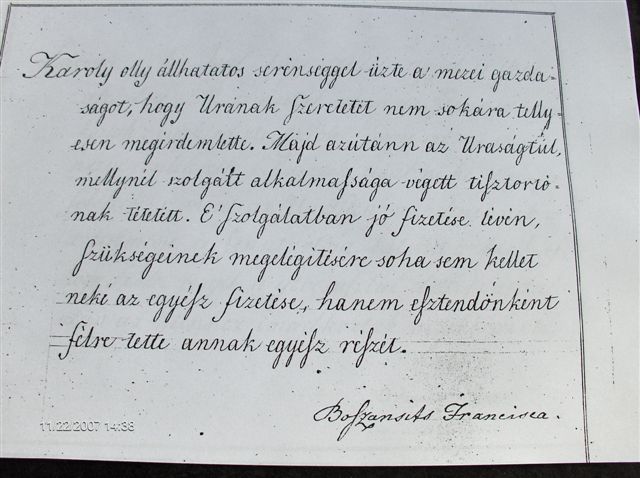 Karoly olly állhatatos serénséggel űzte a mezei gazda-
ságot, hogy Urának szeretetét nem sokára telly-
esen megérdemlette. Májd azútánn az Uraságtúl,
mellynél szolgált alkalmaſsága végett tisztortó-
nak tétetett. E' szolgálatban jó fizetése lévén,
ſzükségeinek megelégitésére soha sem kellet
neki az egyéſz fizetése, hanem eſztendőnként
félre tette annak egyéſz részét.
Boſzansits Francisca.
11/22/2007 14:38